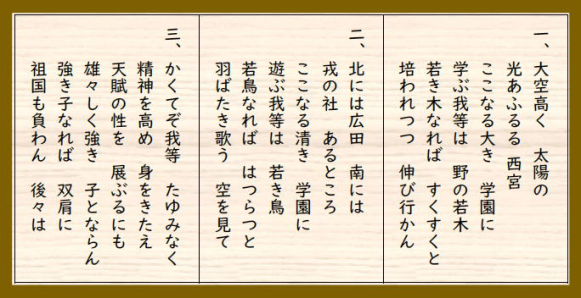 一、大空高く　太陽の
光あふるる　西宮
ここなる大き　学園に
学ぶ我等は　野の若木
若き木なれば　すくすくと
培われつつ　伸び行かん
二、北には広田　南には
戎の社　あるところ
ここなる清き　学園に
遊ぶ我等は　若き鳥
若鳥なれば　はつらつと
羽ばたき歌う　空を見て
三、かくてぞ我等　たゆみなく
精神を高め　身をきたえ
天賦の性を　展ぶるにも
雄々しく強き　子とならん
強き子なれば　双肩に
祖国も負わん　後々は